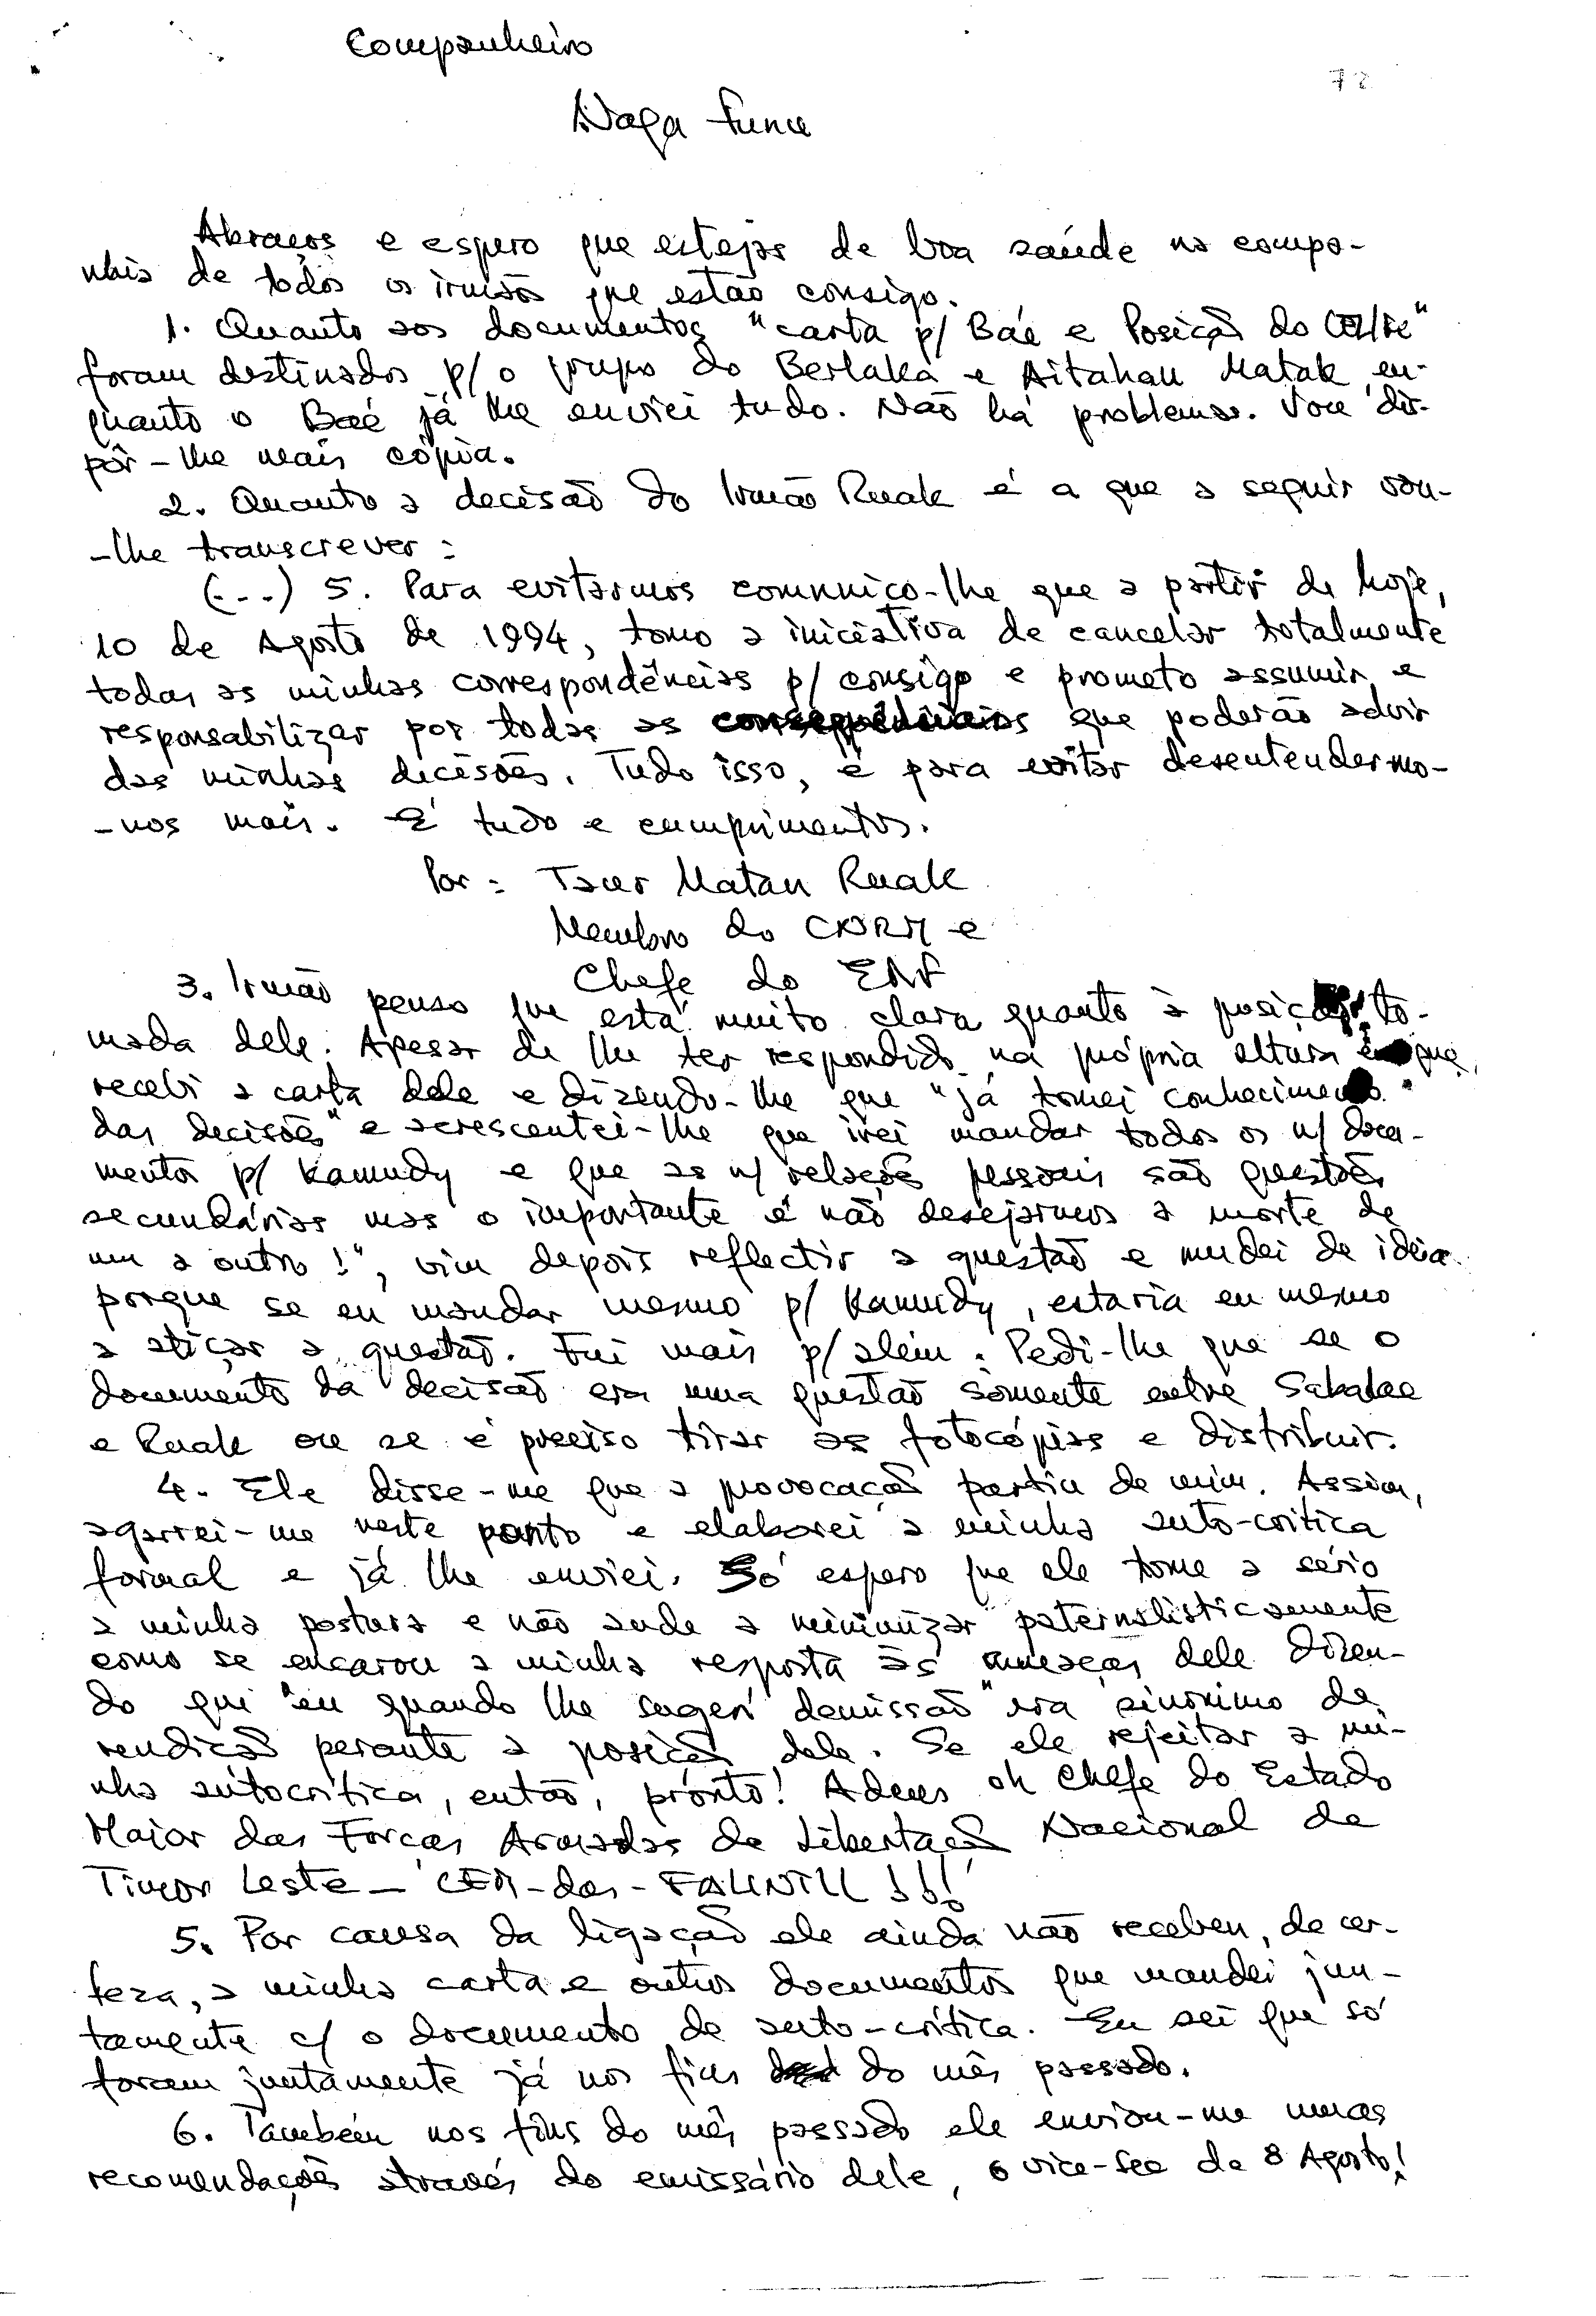 Companheiro
72
Naga Func
Abraços e espero que estejas de boa saúde na compa-
nhia de todos os irmãos que estão consigo.
1. Quanto aos documentos "carta p/ Baé e Posição do
foram destinados p/ o grupo do Berlaka e Aitahan Matak, en-
quanto o Baé já lhe enviei tudo. Não há problemas. Vou dis-
pôr-lhe mais cópia.
2. Quanto a decisão do Irmão Ruak é a que a seguir vou-
-lhe transcrever:
(...) 5. Para evitarmos comunico-lhe que a partir de hoje,
10 de Agosto de 1994, tomo a iniciativa de cancelar totalmente
todas as minhas correspondências p/ consigo e prometo assumir e
responsabilizar por todas as consequências que poderão advir
das minhas decisões. Tudo isso, é para evitar desentendermo-
-nos mais. É tudo e cumprimentos.
Por: Taur Matan Ruak
Membro do CNRM e
Chefe do EMF
3. Irmão penso que está muito clara quanto à posição to-
mada dele. Apesar de lhe ter respondido na própria altura que
recebi a carta dele e dizendo-lhe que "já tomei conhecimento
das decisões" e acrescentei-lhe que irei mandar todos os n/ docu-
mentos p/ Kamudy e que as n/ relações pessoais são questões
secundárias mas o importante é não desejarmos a morte de
um a outro!", vim depois reflectir a questão e mudei de ideia
porque se eu mandar mesmo p/ Kamudy, estaria eu mesmo
a atiçar a questão. Fui mais p/ além. Pedi-lhe que se o
documento da decisão era uma questão sòmente entre Sabalae
e Ruak ou se é preciso tirar as fotocópias e distribuir.
4. Ele disse-me que a provocação partiu de mim. Assim,
agarrei-me neste ponto e elaborei a minha auto-crítica
formal e já lhe enviei. Só espero que ele tome a sério
a minha postura e não ande a minimizar paternalisticamente
como se encarou a minha resposta às ameaças dele dizen-
do que "eu quando lhe sugeri demissão" era sinónimo de
rendição perante a posição dele. Se ele rejeitar a mi-
nha autocrítica, então, pronto! Adeus oh Chefe do Estado
Maior das Forças Armadas de Libertação Nacional de
Timor Leste - CEM-das-FALINTIL!!!
5. Por causa da ligação ele ainda não recebeu, de cer-
teza, a minha carta e outros documentos que mandei jun-
tamente c/ o documento de auto-crítica. Eu sei que só
foram juntamente já nos fins do mês passado.
6. Também nos fins do mês passado ele enviou-me umas
recomendações através do emissário dele, o vice-sec de 8 Agosto!